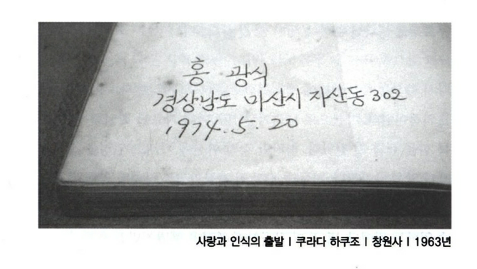 홍 광식
경상남도 마산시 자산동 302
1974. 5. 20
사랑과 인식의 출발 | 쿠라다 하쿠조 | 창원사 | 1963년